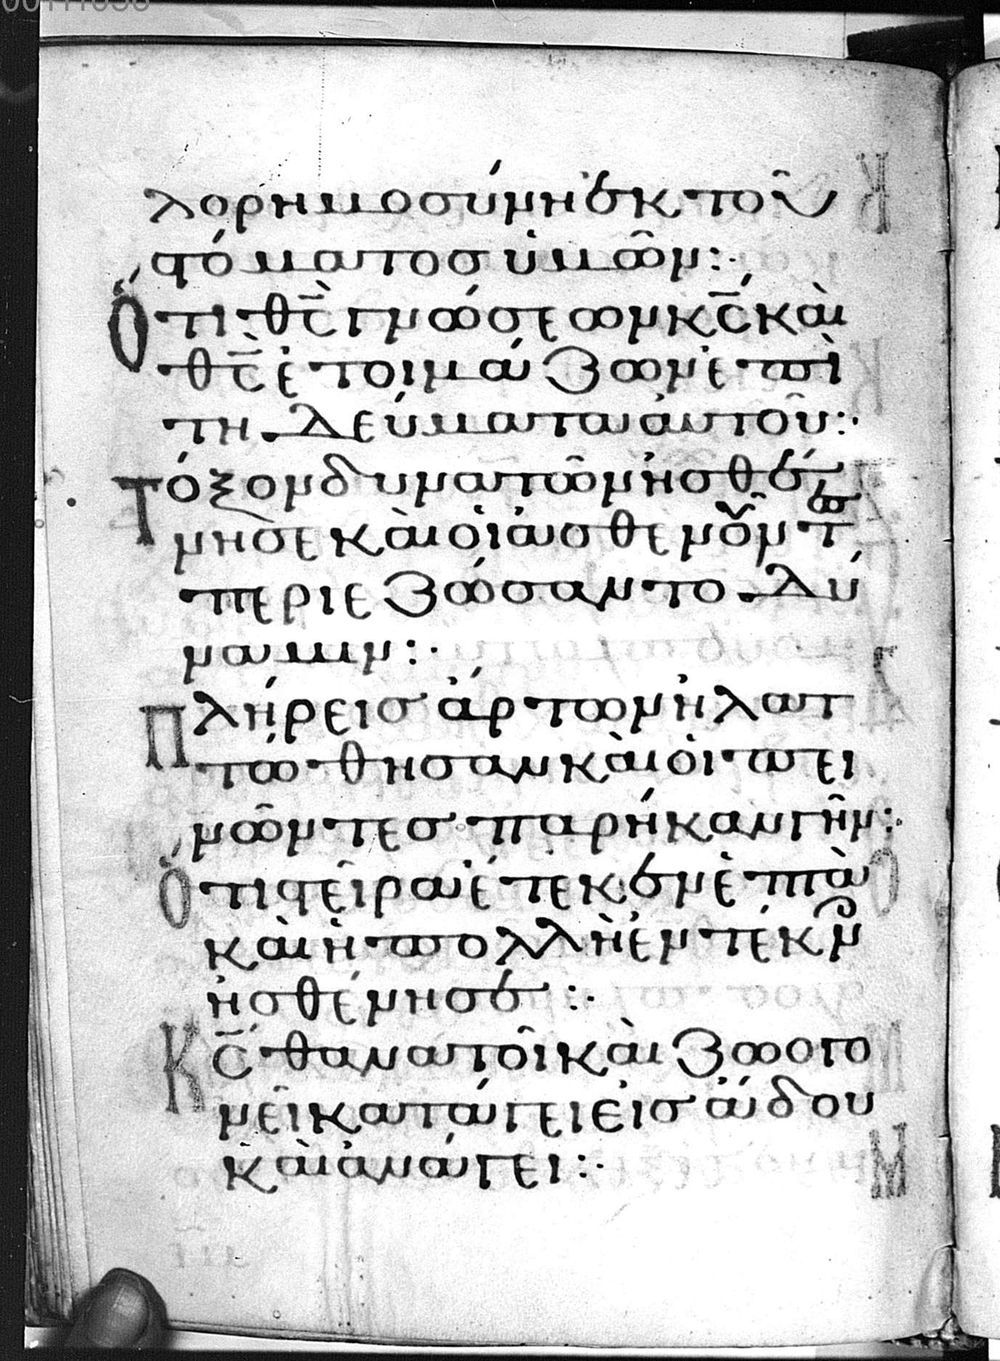 λορημοσύνη ἐκ τοῦ
στόματος ὑμῶν:·
Ὅτι θς̄ γνώσεων κς̄ καὶ
θς̄ ἑτοιμάζων ἐπι
τηδεύματα αὐτοῦ:·
Τόξον δυνατῶν ἠσθέ
νησε καὶ οἱ ἀσθενοῦντ
περιεζώσαντο δύ
ναμιν:·
Πλήρεις ἄρτων ἠλατ
τώθησαν καὶ οἱ πει
νῶντες παρῆκαν γῆν:·
Ὅτι στεῖρα ἔτεκεν ἑπτὰ
καὶ ἡ πολλὴ ἐν τέκν
ἠσθένησε:·
Κς̄ θανατοῖ καὶ ζωογο
νεῖ κατάγει εἰς ἅδου
καὶ ἀνάγει:·